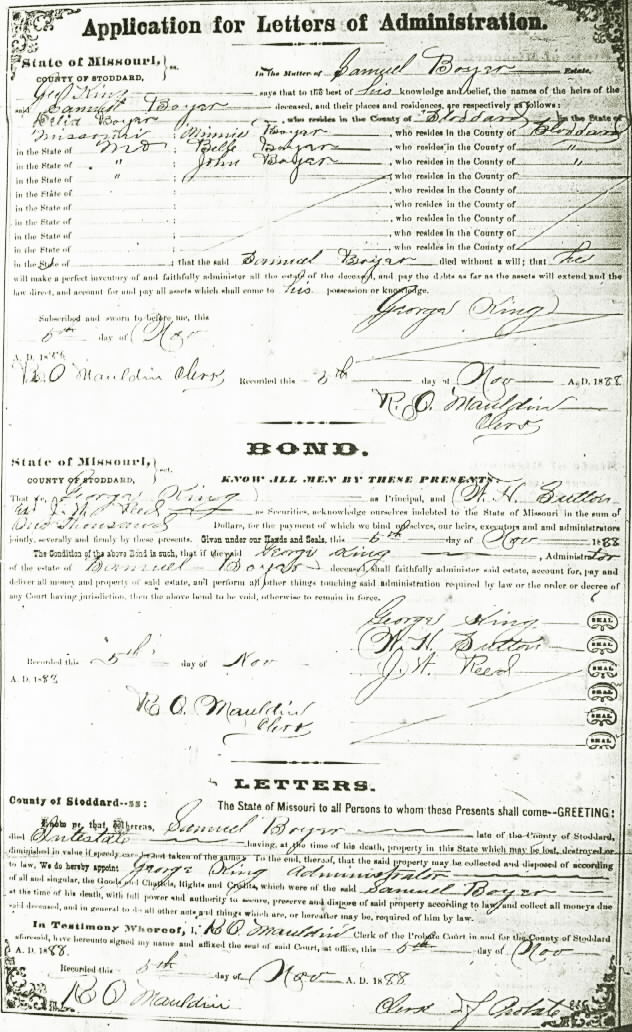 Application for Letters of Administration.
State of Missouri,
COUNTY OF STODDARD, ss.
In the Matter of Samuel Boyer Estate.
Geo King says that to the best of his knowledge and belief, the names of the heirs of the
said Samuel Boyer deceased, and their places and residences, are respectively as follows:
Boyer, who resides in the County of Stoddard in the State of
Missouri Minnie Boyer, who resides in the County of Stoddard
in the State of Mo ; Belle Boyer, who resides in the County of "
in the State of " ; John Boyer, who resides in the County of "
in the State of " ; , who resides in the County of
in the State of ; , who resides in the County of
in the State of ; , who resides in the County of
in the State of ; , who resides in the County of
in the State of ; , who resides in the County of
in the State of ; , who resides in the County of
in the State of ; that the said Samuel Boyer died without a will; that he
will make a perfect inventory of and faithfully administer all the estate of the deceased, and pay the debts as far as the assets will extend and the
law direct, and account for and pay all assets which shall come to his possession or knowledge.
George King
Subscribed and sworn to before me, this
5th day of Nov
A. D. 1888
R. O. Mauldin Clerk Recorded this 5th day of Nov A. D. 1888
R. O. Mauldin
Clerk
BOND.
State of Missouri,
COUNTY OF STODDARD,
KNOW ALL MEN BY THESE PRESENTS:
That we, George King as Principal, and W. H. Sutton
J. W. Reed as Securities, acknowledge ourselves indebted to the State of Missouri in the sum of
One Thousand Dollars, for the payment of which we bind ourselves, our heirs, executors and and administrators
jointly, severally and firmly by these presents. Given under our Hands and Seals, this 5th day of Nov 1888
The Condition of the above Bond is such, that if the said George King, Administrator
of the estate of Samuel Boyer deceased, shall faithfully administer said estate, account for, pay and
deliver all money and property of said estate, and perform all other things touching said administration required by law or the order or decree of
any Court having jurisdiction, then the above bond to be void, otherwise to remain in force.
George King SEAL
W. H. Sutton SEAL
Recorded this 5th day of Nov J. W. Reed SEAL
A. D. 1888 SEAL
R. O. Mauldin SEAL
Clerk SEAL
LETTERS.
County of Stoddard--ss: The State of Missouri to all Persons to whom these Presents shall come--GREETING:
Know ye, that, whereas, Samuel Boyer late of the County of Stoddard,
died Intestate having, at the time of his death, property in this State which may be lost, destroyed or
diminished in value if speedy care be not taken of the same: To the end, thereof, that the said property may be collected and disposed of according
to law, We do hereby appoint George King Administrator
of all and singular, the Goods and Chattels, Rights and Credits, which were of the said Samuel Boyer
at the time of his death, with full power and authority to secure, preserve and dispose of said property according to law, and collect all moneys due
said deceased, and in general to do all other acts and things which are, or hereafter may be, required of him by law.
In Testimony Whereof, I, R. O. Mauldin Clerk of the Probate Court in and for the County of Stoddard
aforesaid, have hereunto signed my name and affixed the seal of said Court, at office, this 5th day of Nov
A. D. 1888.
Recorded this 5th day of Nov A. D. 1888
R O Mauldin Clerk of Probate